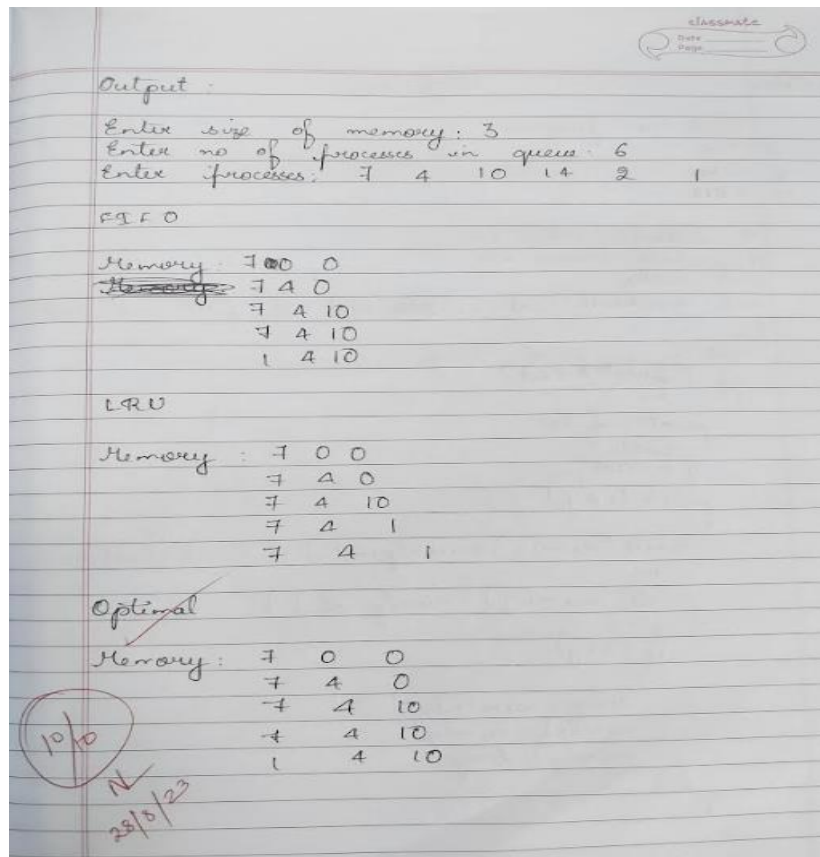 classmate
Date
Page
Output :
Enter size of memory : 3
Enter no of processes in queue : 6
Enter processes : 7 4 10 14 2 1
FIFO
Memory : 7 0 0
7 4 0
7 4 10
7 4 10
1 4 10
LRU
Memory : 7 0 0
7 4 0
7 4 10
7 4 1
7 4 1
Optimal
Memory : 7 0 0
7 4 0
7 4 10
7 4 10
1 4 10
10/10
28/8/23